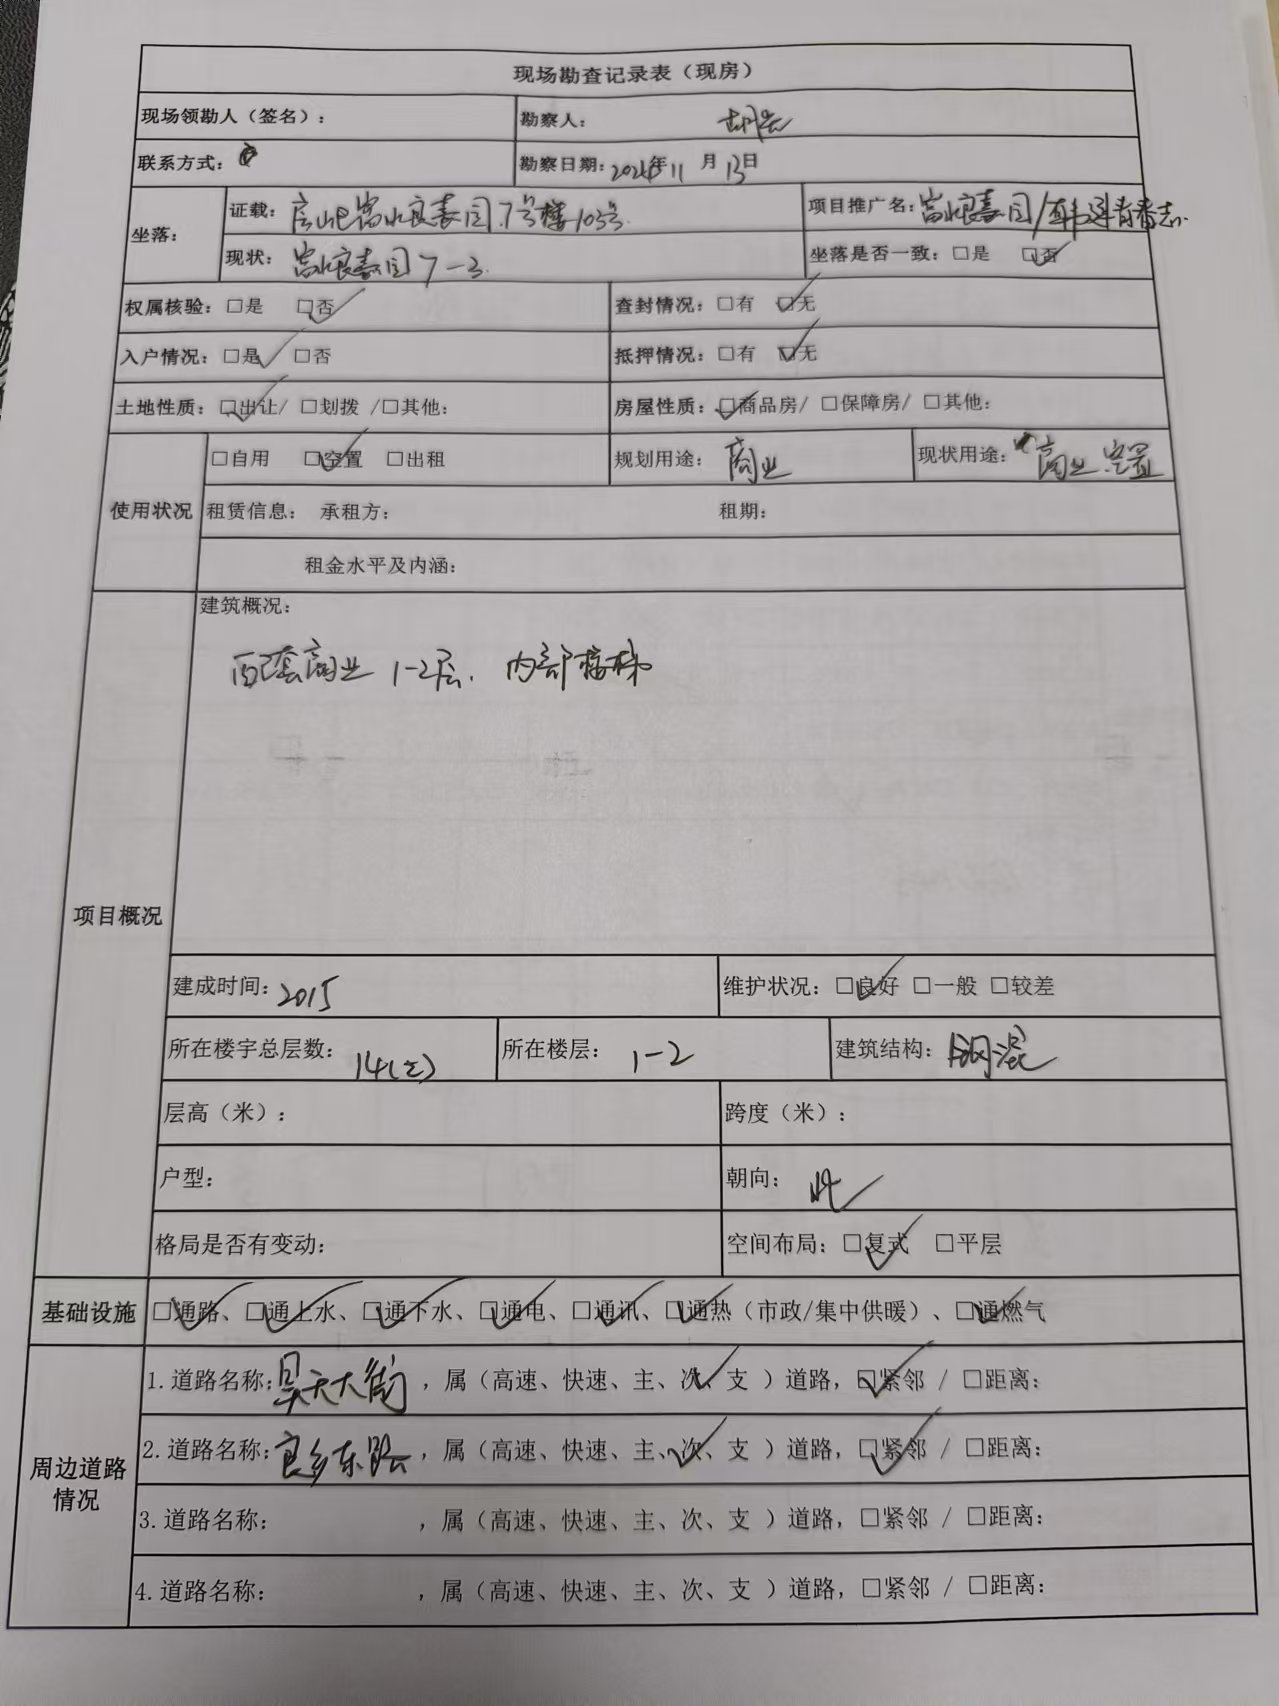 现场勘查记录表（现房）
现场领勘人（签名）： 勘察人：
联系方式： 勘察日期：2024年11月13日
坐落： 证载：房山区嵩水良春园7号楼103号 项目推广名：嵩水良春园/
现状：嵩水良春园7-3 坐落是否一致：□是 ☑否
权属核验：□是 ☑否 查封情况：□有 ☑无
入户情况：☑是 □否 抵押情况：□有 ☑无
土地性质：☑出让/ □划拨 /□其他： 房屋性质：☑商品房/ □保障房/ □其他：
使用状况 □自用 ☑空置 □出租 规划用途：商业 现状用途：商业.空置
租赁信息： 承租方： 租期：
租金水平及内涵：
项目概况 建筑概况：
配套商业 1-2层. 内部楼梯
建成时间：2015 维护状况：☑良好 □一般 □较差
所在楼宇总层数：14(2) 所在楼层：1-2 建筑结构：钢混
层高（米）： 跨度（米）：
户型： 朝向：北
格局是否有变动： 空间布局：☑复式 □平层
基础设施 ☑通路、☑通上水、☑通下水、☑通电、☑通讯、☑通热（市政/集中供暖）、☑通燃气
周边道路情况 1.道路名称：昊天大街，属（高速、快速、主、次✓、支 ）道路，☑紧邻 / □距离：
2.道路名称：良乡东路，属（高速、快速、主、次✓、支 ）道路，☑紧邻 / □距离：
3.道路名称： ，属（高速、快速、主、次、支 ）道路，□紧邻 / □距离：
4.道路名称： ，属（高速、快速、主、次、支 ）道路，□紧邻 / □距离：